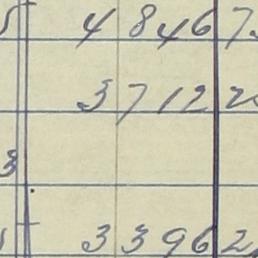 5 4846 7
3712 2
3
3396 2